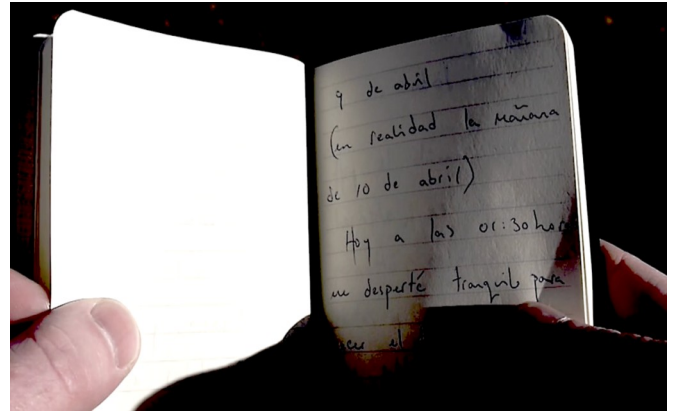 9 de abril
(en realidad la mañana
de 10 de abril)
Hoy a las 01:30 hora
me desperté tranquilo para
el